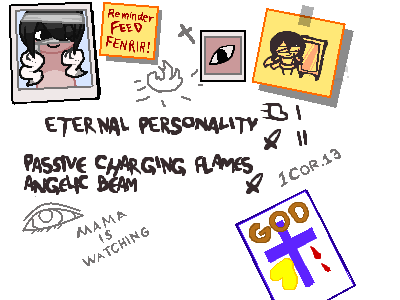 Reminder
FEED
FENRIR!
ETERNAL PERSONALITY
I
II
PASSIVE CHARGING FLAMES
ANGELIC BEAM
1COR.13
MAMA
IS
WATCHING
GOD